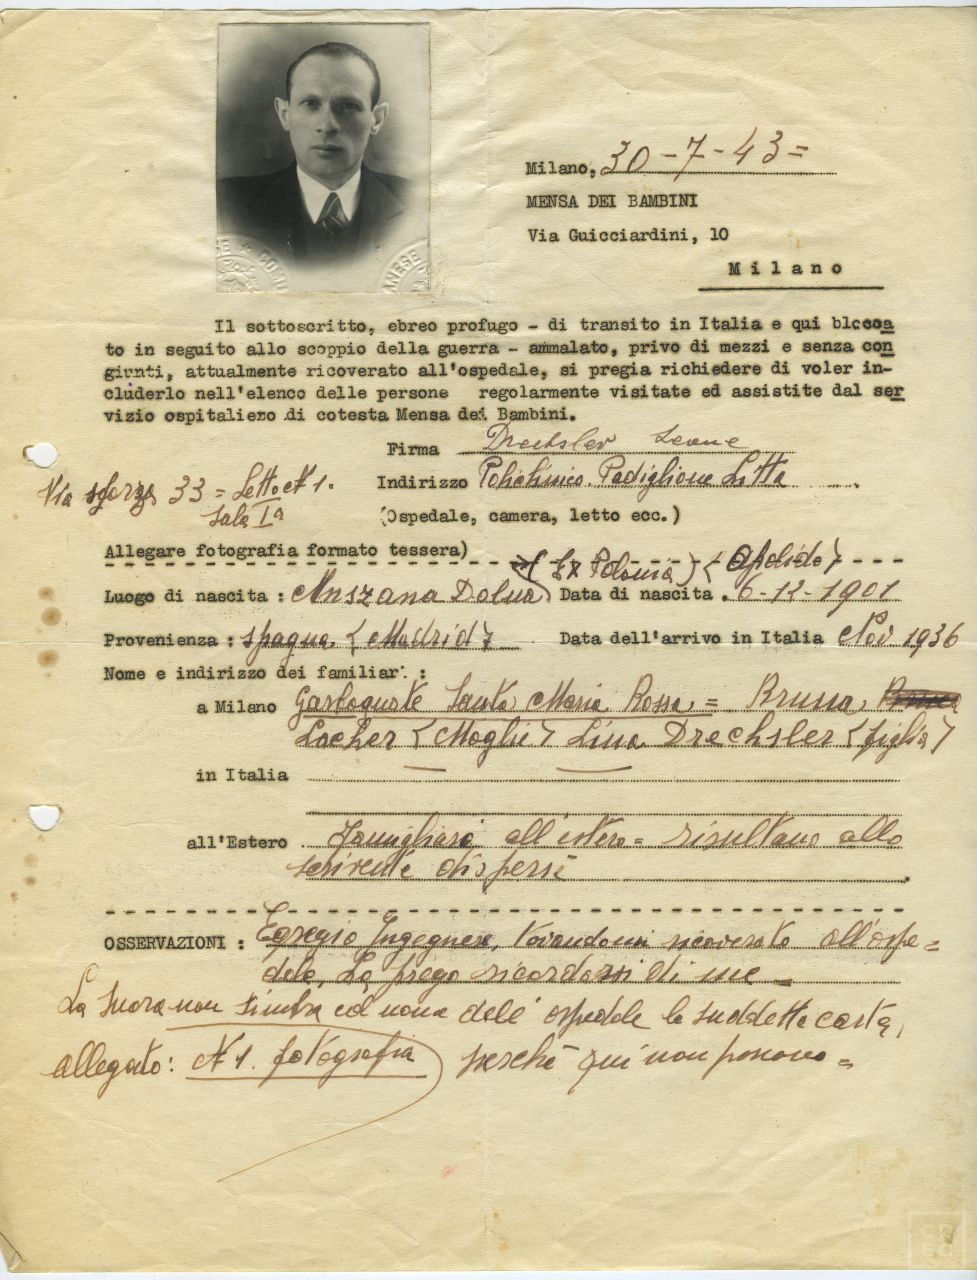 Milano, 30-7-43=
MENSA DEI BAMBINI
Via Guicciardini, 10
Milano
Il sottoscritto, ebreo profugo - di transito in Italia e qui blccoa
to in seguito allo scoppio della guerra - ammalato, privo di mezzi e senza con
giunti, attualmente ricoverato all'ospedale, si pregia richiedere di voler in-
cluderlo nell'elenco delle persone regolarmente visitate ed assistite dal ser
vizio ospitaliero di cotesta Mensa dei Bambini.
Firma Drechsler Leone
Via Sforza 33 = Letto N 1.
Sala Iª
Indirizzo Policlinico. Padiglione Litta
(Ospedale, camera, letto ecc.)
Allegare fotografia formato tessera)
(Ex Polonia) (Apolido)
Luogo di nascita : Anszana Dolna Data di nascita . 6-12-1901
Provenienza : Spagna (Madrid) Data dell'arrivo in Italia Nov. 1936
Nome e indirizzo dei familiar' :
a Milano Santa Maria Rossa = Bruna,
Locher (Moglie) Lina Drechsler (figlia)
in Italia
all'Estero Famigliari all'estero = risultano allo
scrivente dispersi
OSSERVAZIONI : Egregio Ingegnere, trovandomi ricoverato all'ospe=
dale, La prego ricordarsi di me
La Suora non timbra ed nome dell' ospedale la suddetta carta,
allegato: N 1. fotografia perchè qui non possono =